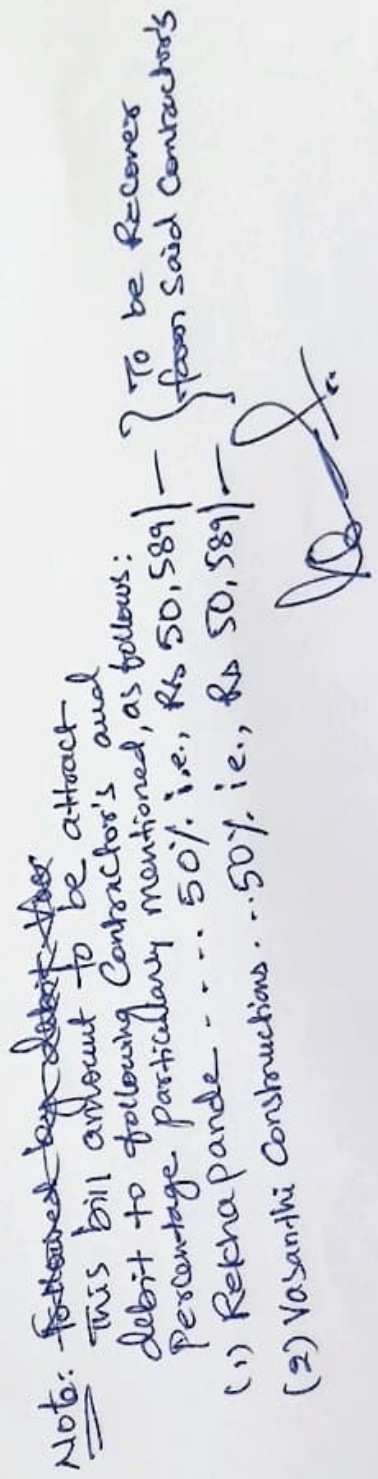 Note: followed by debit thro
This bill amount to be attract
debit to following Contractor's and
percentage particularly mentioned, as follows:
(1) Rekha pande ..... 50% i.e., Rs 50,589/-
(2) Vasanthi Constructions...50% i.e., Rs 50,589/-
} To be Recover
from Said Contractor's